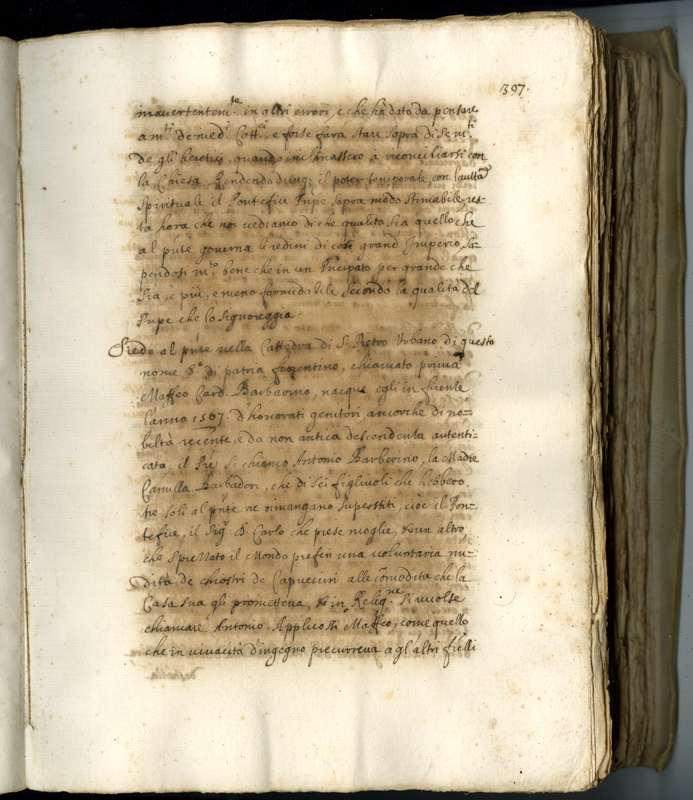 397.
inavertentem.te in altri errori, e che ha dato da pensare
a m.ti de med.i Catt.ci, e forse farà stare sopra di se m.ti
de gli heretici, quando inclinassero a riconciliarsi con
la Chiesa. Rendendo dunq; il poter temporale, con l'aut.tà
spirituale il Pontefice Prnpe sopra modo stimabile, res-
ta hora che noi vediamo di che qualità sia quello che
al pnte governa li redini di così grand' Imperio, sa-
pendosi m.to bene che in un Prcipato per grande che
sia, è più, e meno formidabile secondo la qualità del
Prnpe che lo signoreggia
Siede al pnte nella Cattedra di S. Pietro Urbano di questo
nome 8.o di patria fiorentino, chiamato prima
Maffeo Card. Barbarino, nacque egli in firenze
l'anno 1567. d'honorati genitori, ancorche di no-
biltà recente, e da non antica descendenza autenti-
cata, il Pre si chiamò Antonio Barberino, la Madre
Camilla Barbadori, che di sei figlivoli che hebbero,
tre soli al pnte ne rimangano superstiti, cioè il Pon-
tefice, il Sig.r D. Carlo che prese moglie, et un altro,
che sprezzato il Mondo preferì una voluntaria nu-
dità de chiostri de Capuccini alle comodità che la
Casa sua gli prometteva, et in Relig.ne si volse
chiamare Antonio. Applicossi Maffeo, come quello
che in vivacità d'ingegno precurreva a gl'altri frelli